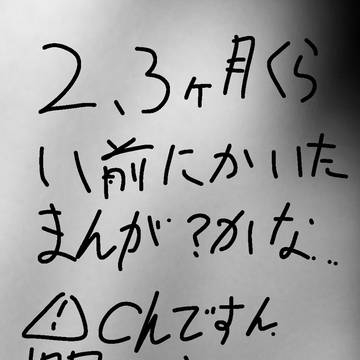 2、3ヶ月くら
い前にかいた
まんが?かな...
⚠Chですん